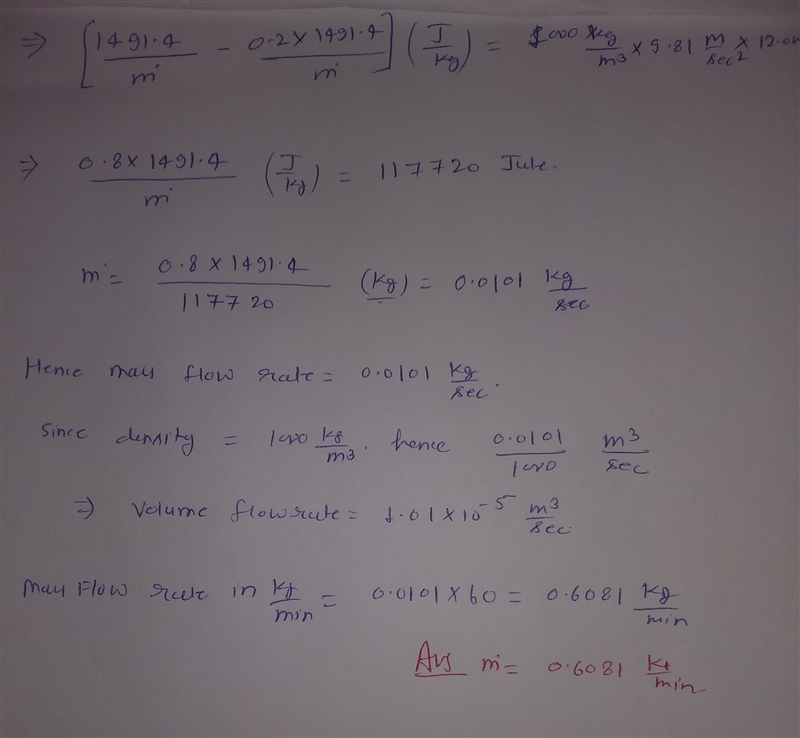 ⇒ [1491.4/ṁ - 0.2×1491.4/ṁ] (J/kg) = 1000 kg/m3 × 9.81 m/sec2 × 12.0
⇒ 0.8×1491.4/ṁ (J/kg) = 117720 Jule.
ṁ = 0.8×1491.4/117720 (kg) = 0.0101 kg/sec
Hence mass flow rate = 0.0101 kg/sec.
Since density = 1000 kg/m3. hence 0.0101/1000 m3/sec
⇒ Volume flowrate = 1.01×10-5 m3/sec
Mass Flow rate in kg/min = 0.0101×60 = 0.6081 kg/min
Ans ṁ = 0.6081 kg/min